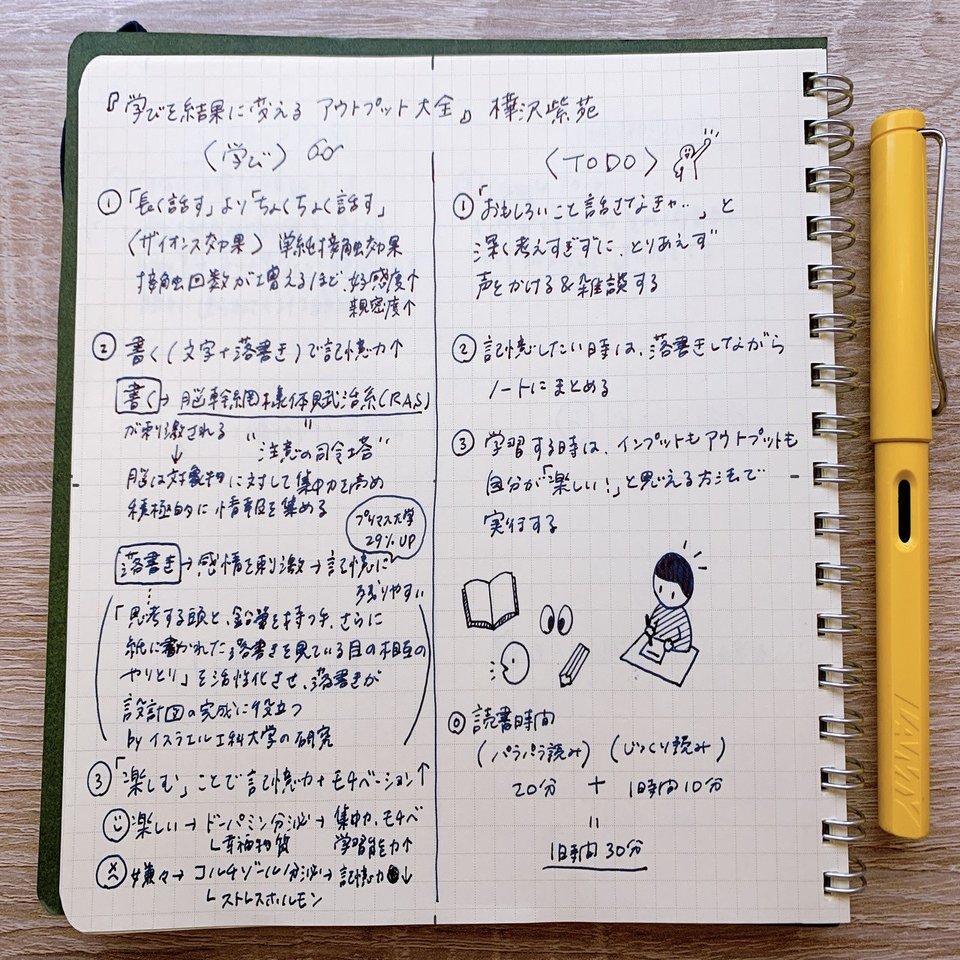 『学びを結果に変える アウトプット大全』 樺沢紫苑
〈学び〉
① 「長く話す」より「ちょくちょく話す」
〈ザイオンス効果〉 単純接触効果
接触回数が増えるほど、好感度↑
親密度↑
② 書く(文字+落書き)で記憶力↑
書く→ 脳幹網様体賦活系(RAS)
が刺激される 〃
↓ “注意の司令塔”
脳は対象物に対して集中力を高め
積極的に情報を集める
プリマス大学
29% UP
落書き→感情を刺激→記憶に
残りやすい
「思考する頭と、鉛筆を持つ手、さらに
紙に書かれた落書きを見ている目の相互の
やりとり」を活性化させ、落書きが
設計図の完成に役立つ
by イスラエル工科大学の研究
③ 「楽しむ」ことで記憶力+モチベーション↑
楽しい→ドーパミン分泌→集中力、モチベ
└幸福物質 学習能力↑
嫌々→コルチゾール分泌→記憶力↓
└ストレスホルモン
〈TODO〉
① 「おもしろいこと話さなきゃ…」と
深く考えすぎずに、とりあえず
声をかける&雑談する
② 記憶したい時は、落書きしながら
ノートにまとめる
③ 学習する時は、インプットもアウトプットも
自分が「楽しい!」と思える方法で
実行する
◎ 読書時間
(パラパラ読み) (じっくり読み)
20分 + 1時間10分
〃
1時間30分
LAMY